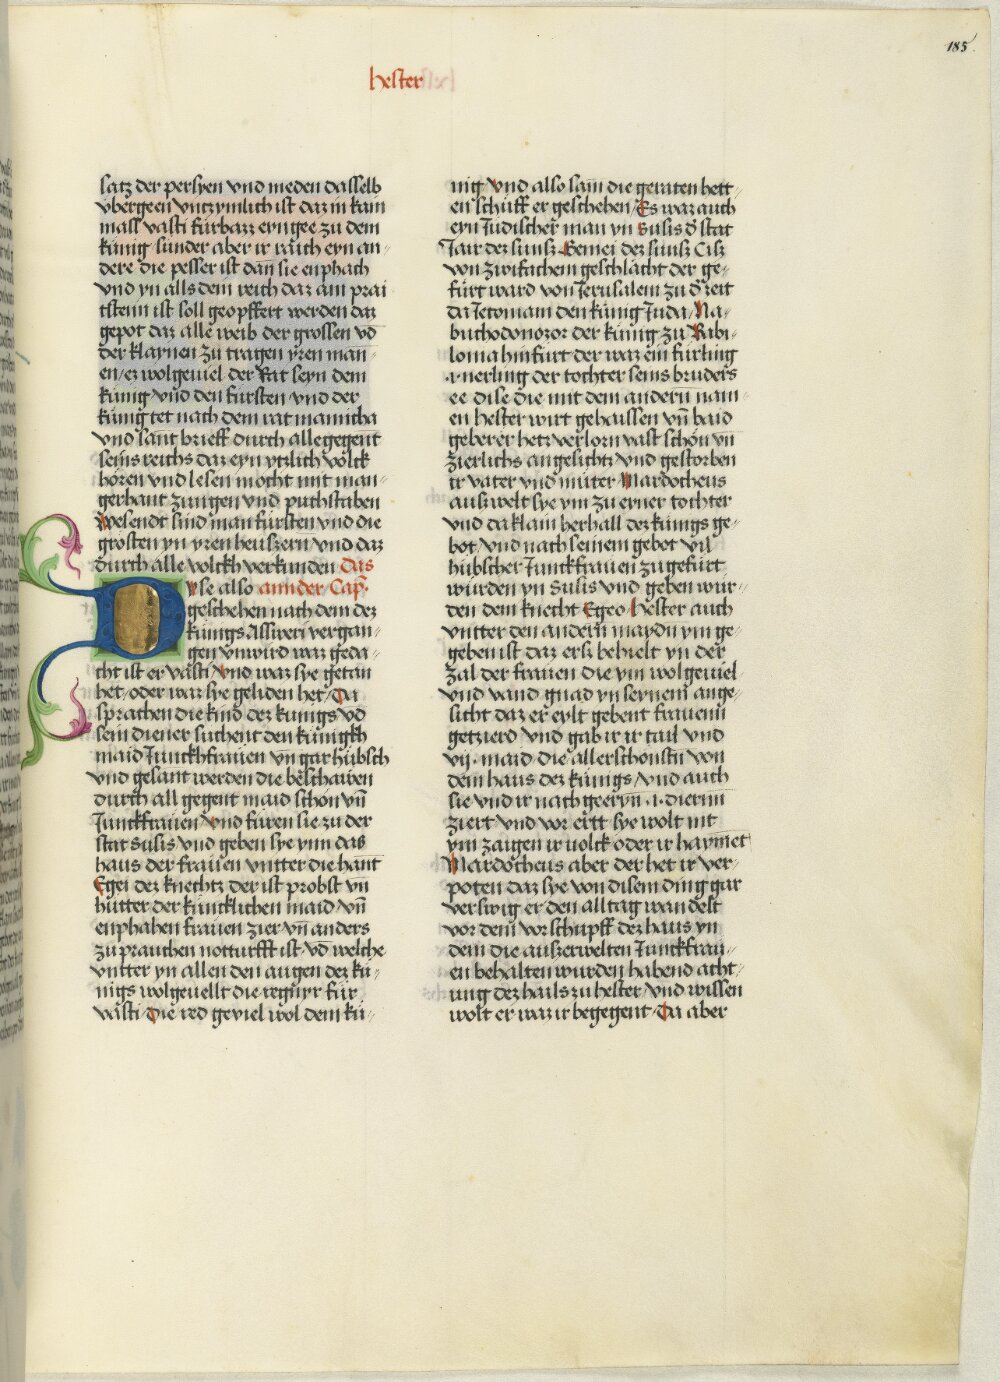 185
hester
satz der persyen vnd meden dasselb
vbergeen vntzymlich ist daz in kain
mass vasti fürbazz eyngee zu dem
künig sunder aber ir reich eyn an-
dere die pesser ist dan sie enphach
vnd yn alls dein reich daz am prai
tstenn ist soll geopffert werden daz
gepot daz alle weib der grossen vd
der klaynen zu tragen yren man-
en/ez wolgeuiel der Rat seyn dem
künig vnd den fürsten vnd der
künig tet nach dem rat mamucha
vnd sant brieff durch alle gegent
seins reichs daz eyn ytzlich volck
hören vnd lesen mocht mit man-
gerhant zungen vnd puchstaben
wesendt sind man fürsten vnd die
grosten yn yren heuszern vnd daz
durch alle volckh verkunden das
Dyse also annder Cap.
geschehen nach dem dez
künigs Assweri vergan-
gen vnwird waz geda-
cht ist er vasti/vnd waz sye getan
het/oder waz sye geliden het/Da
sprachen die kind dez kunigs vd
sein diener suchent den künigkh
maid Junckhfrauen vn gar hübsch
vnd gesant werden die beschawen
durch all gegent maid schon vnn
Junckfrauen/vnd füren sie zu der
stat Susis vnd geben sye ynn das
haus der frauen vntter die hant
Egei dez knechtz der ist probst vn
hütter der küncklichen maid vnn
enphahen frauen zier vnn anders
zu prauchen notturfft ist/vd welche
vntter yn allen den augen dez kü-
nigs wolgeuellt die regnyr für
vasti/Die red geviel wol dem kü-
nig vnd also sam die geraten hett-
en schüff er geschehen/Es waz auch
eyn Judischer man yn Susis d stat
Jair dez sunsz Semei dez sunsz Cisz
von zwifachem geschlächt der ge-
fürt ward von Jerusalem zu d zeit
da Jeconiam den künig Juda/Na-
buchodonozor der künig zu Babi-
lonia hinfürt der waz ein fürling
nerling der tochter seins bruders
ee dise die mit dem andern nam-
en hester wirt gehaissen vn baid
geberer hetz verlorn vast schön vn
zierlichs angesichtz vnd gestorben
ir vater vnd müter Mardocheus
auszwelt sye ym zu eyner tochter
vnd da klain herhall dez künigs ge-
bot/vnd nach seinem gebot vil
hübscher Junckfrauen zugefürt
würden yn Susis vnd geben wür-
den dem knecht Egeo hester auch
vntter den andern maydn ym ge-
geben ist daz ersz behielt yn der
zal der frauen die ym wolgeuiel
vnd vand gnad yn seynem ange-
sicht daz er eylt gebent fraueni
getzierd vnd gab ir ir tail vnd
vij. maid die allerschonstn von
dem haus dez künigs/vnd auch
sie vnd ir nachgeeryn .i. diernn
ziert vnd vor ertt sye wolt nit
ym zaigen ir volck oder ir haymet
Mardocheus aber der het ir ver-
poten daz sye von disem ding gar
verswig er den alltag wandelt
vor dem vorschupff dez haus yn
dem die auszerwelten Junckfrau-
en behalten wurden habend acht-
ung dez hails zu hester/vnd wissen
wolt er waz ir begegent/Da aber